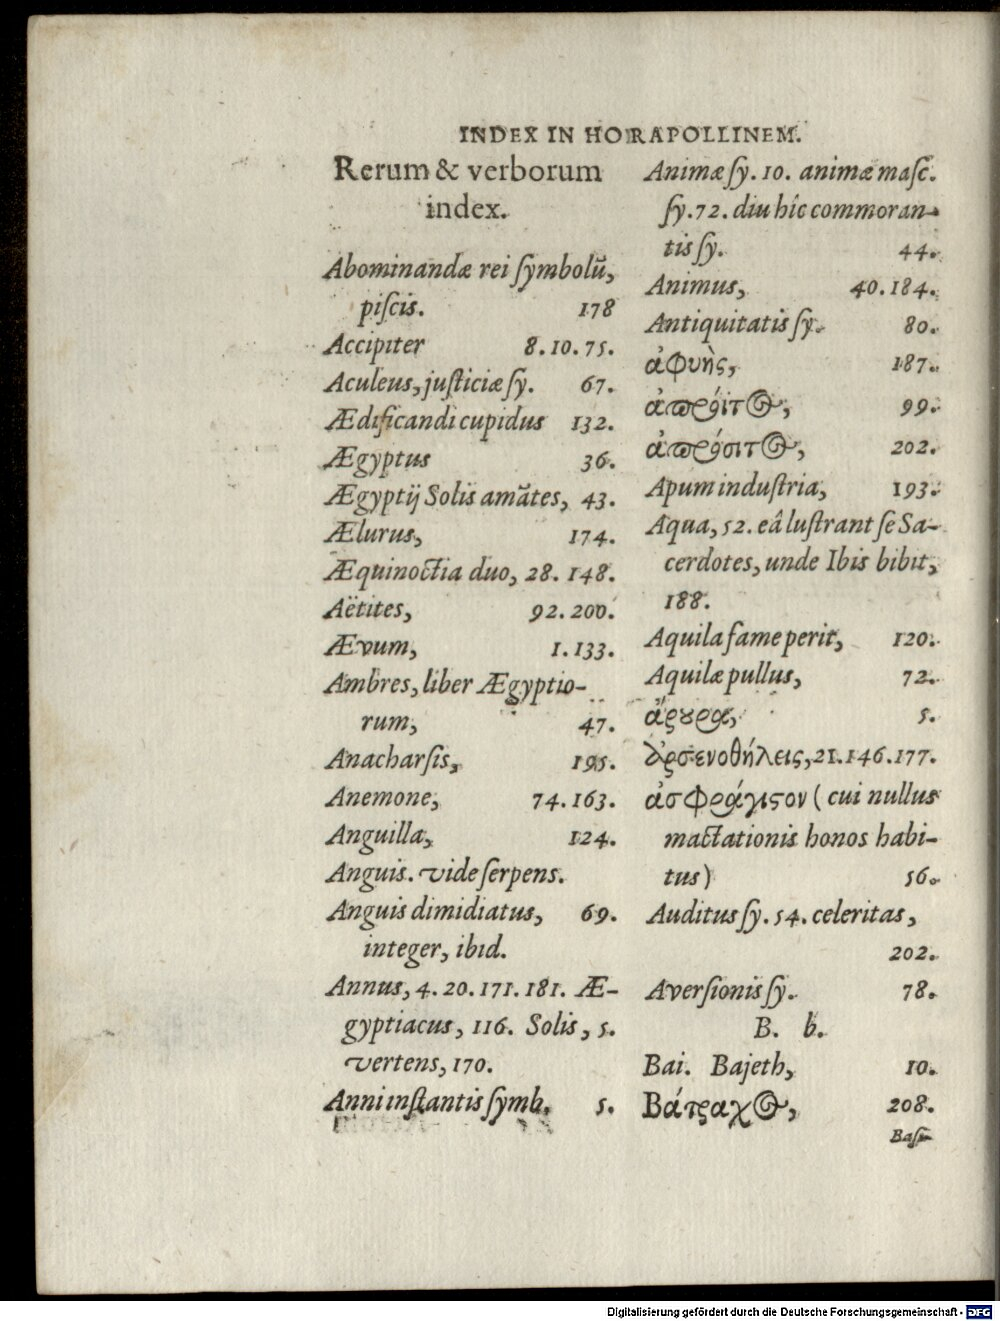 INDEX IN HORAPOLLINEM.
Rerum & verborum
index.
Abominandæ rei ſymbolũ,
piſcis. 178
Accipiter 8.10.75.
Aculeus, juſticiæ ſy. 67.
Ædificandi cupidus 132.
Ægyptus 36.
Ægyptij Solis amãtes, 43.
Ælurus, 174.
Æquinoctia duo, 28. 148.
Aëtites, 92.200.
Ævum, 1.133.
Ambres, liber Ægyptio-
rum, 47.
Anacharſis, 195.
Anemone, 74.163.
Anguilla, 124.
Anguis. vide ſerpens.
Anguis dimidiatus, 69.
integer, ibid.
Annus, 4. 20. 171. 181. Æ-
gyptiacus, 116. Solis, 5.
vertens, 170.
Anni inſtantis ſymb. 5.
Animæ ſy. 10. animæ maſc.
ſy. 72. diu hîc commoran-
tis ſy. 44.
Animus, 40.184.
Antiquitatis ſy. 80.
ἀφυὴς, 187.
ἀπρόϊτος, 99.
ἀπρόσιτος, 202.
Apum induſtria, 193.
Aqua, 52. eâ luſtrant ſe Sa-
cerdotes, unde Ibis bibit,
188.
Aquila fame perit, 120.
Aquilæ pullus, 72.
ἄρουρα, 5.
ἀρσενοθήλεις, 21.146.177.
ἀσφράγιστον ( cui nullus
mactationis honos habi-
tus) 56.
Auditus ſy. 54. celeritas,
202.
Averſionis ſy. 78.
B. b.
Bai. Bajeth, 10.
Βάτραχος, 208.
Baſi-
Digitalisierung gefördert durch die Deutsche Forschungsgemeinschaft - DFG